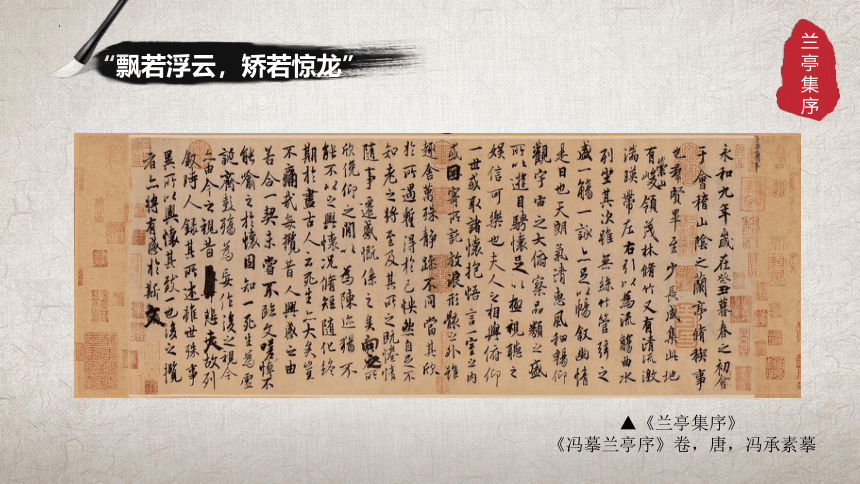 “飘若浮云，矫若惊龙”
兰亭集序
永和九年歲在癸丑暮春之初會
于會稽山陰之蘭亭脩稧事
也羣賢畢至少長咸集此地
有崇山峻領茂林脩竹又有清流激
湍暎帶左右引以為流觴曲水
列坐其次雖無絲竹管弦之
盛一觴一詠亦足以暢敘幽情
是日也天朗氣清惠風和暢仰
觀宇宙之大俯察品類之盛
所以遊目騁懷足以極視聽之
娛信可樂也夫人之相與俯仰
一世或取諸懷抱悟言一室之內
或因寄所託放浪形骸之外雖
趣舍萬殊靜躁不同當其欣
於所遇暫得於己怏然自足不
知老之將至及其所之既惓情
隨事遷感慨係之矣向之所
欣俛仰之閒以為陳迹猶不
能不以之興懷況脩短隨化終
期於盡古人云死生亦大矣豈
不痛哉每攬昔人興感之由
若合一契未嘗不臨文嗟悼不
能喻之於懷固知一死生為虛
誕齊彭殤為妄作後之視今
亦由今之視昔悲夫故列
敘時人錄其所述雖世殊事
異所以興懷其致一也後之攬
者亦將有感於斯文
▲《兰亭集序》
《冯摹兰亭序》卷，唐，冯承素摹